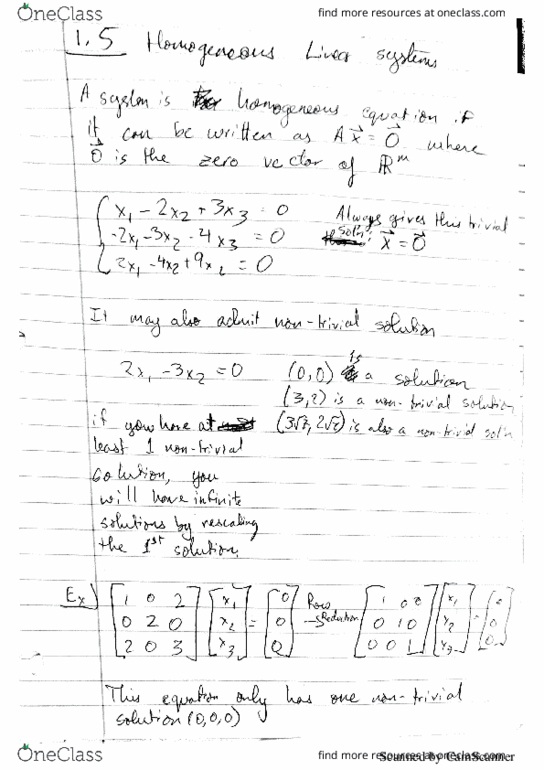 OneClass
find more resources at oneclass.com
1.5 Homogeneous Linear systems
A system is homogeneous equation if
it can be written as A\vec{x} = \vec{0} where
\vec{0} is the zero vector of ℝ^m
x₁ - 2x₂ + 3x₃ = 0
-2x₁ - 3x₂ - 4x₃ = 0
2x₁ - 4x₂ + 9x₂ = 0
Always gives this trivial
soln: \vec{x} = \vec{0}
It may also admit non-trivial solution
2x₁ - 3x₂ = 0
(0,0) is a solution
(3,2) is a non-trivial solution
(3√2, 2√2) is also a non-trivial sol'n
if you have at
least 1 non-trivial
solution, you
will have infinite
solutions by rescaling
the 1st solution
Ex) [1 0 2] [x₁] = [0] Row Reduction → [1 0 0] [x₁] = [0]
[0 2 0] [x₂] [0] [0 1 0] [x₂] [0]
[2 0 3] [x₃] [0] [0 0 1] [x₃] [0]
This equation only has one non-trivial
solution (0,0,0)
OneClass
find more resources at oneclass.com
Scanned by CamScanner